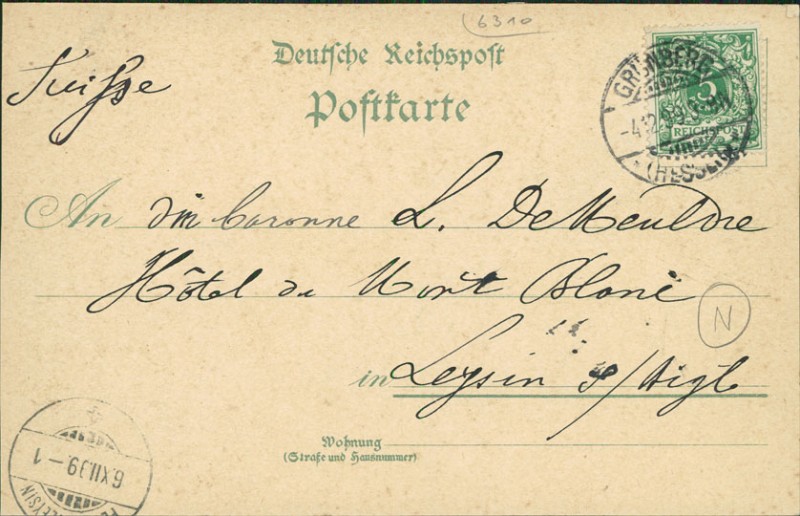 6310
Deutsche Reichspost
Suisse
Postkarte
GRÜNBERG
-4.12.99.
(HESSEN)
5
REICHSPOST
An die baronne L. De Meuldre
Hôtel du Mont Blanc
N
in Leysin s/Aigl
Wohnung
(Straße und Hausnummer)
6.XII.99-1
LEYSIN